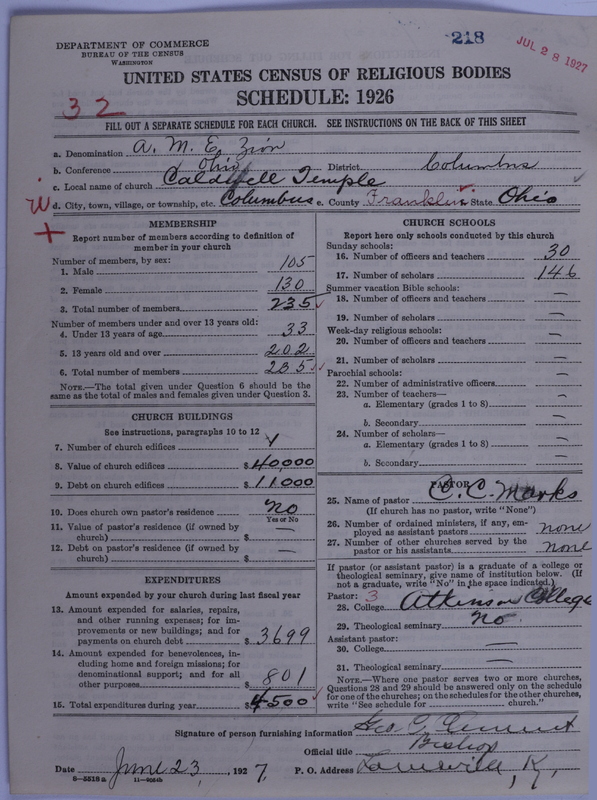 218
JUL 28 1927
DEPARTMENT OF COMMERCE
BUREAU OF THE CENSUS
WASHINGTON
UNITED STATES CENSUS OF RELIGIOUS BODIES
SCHEDULE: 1926
32
FILL OUT A SEPARATE SCHEDULE FOR EACH CHURCH. SEE INSTRUCTIONS ON THE BACK OF THIS SHEET
a. Denomination A. M. E. Zion
b. Conference Ohio District Columbus
c. Local name of church Caldwell Temple
d. City, town, village, or township, etc. Columbus e. County Franklin State Ohio
MEMBERSHIP
Report number of members according to definition of
member in your church
Number of members, by sex:
1. Male 105
2. Female 130
3. Total number of members 235
Number of members under and over 13 years old:
4. Under 13 years of age 33
5. 13 years old and over 202
6. Total number of members 235
NOTE.—The total given under Question 6 should be
the same as the total of males and females given under Question 3.
CHURCH BUILDINGS
See instructions, paragraphs 10 to 12
7. Number of church edifices
8. Value of church edifices $40,000
9. Debt on church edifices $11,000
10. Does church own pastor's residence No
Yes or No
11. Value of pastor's residence (if owned by
church) $ —
12. Debt on pastor's residence (if owned by
church) $ —
EXPENDITURES
Amount expended by your church during last fiscal year
13. Amount expended for salaries, repairs,
and other running expenses; for im-
provements or new buildings; and for
payments on church debt $3699
14. Amount expended for benevolences, in-
cluding home and foreign missions; for
denominational support; and for all
other purposes $801
15. Total expenditures during year $4500
CHURCH SCHOOLS
Report here only schools conducted by this church
Sunday schools:
16. Number of officers and teachers 30
17. Number of scholars 146
Summer vacation Bible schools:
18. Number of officers and teachers —
19. Number of scholars —
Week-day religious schools:
20. Number of officers and teachers —
21. Number of scholars —
Parochial schools:
22. Number of administrative officers —
23. Number of teachers—
a. Elementary (grades 1 to 8) —
b. Secondary —
24. Number of scholars—
a. Elementary (grades 1 to 8) —
b. Secondary —
PASTOR
25. Name of pastor C. C. Marks
(If church has no pastor, write "None")
26. Number of ordained ministers, if any, em-
ployed as assistant pastors none
27. Number of other churches served by the
pastor or his assistants none
If pastor (or assistant pastor) is a graduate of a college or
theological seminary, give name of institution below. (If
not a graduate, write "No" in the space indicated.)
Pastor: 3
28. College Atkinson College
29. Theological seminary No.
Assistant pastor:
30. College —
31. Theological seminary —
NOTE.—Where one pastor serves two or more churches,
Questions 28 and 29 should be answered only on the schedule
for one of the churches; on the schedules for the other churches,
write "See schedule for church."
Signature of person furnishing information Geo. C. Clement
Official title Bishop
Date June 23, 1927, P. O. Address Louisville, Ky.
8-5518 a